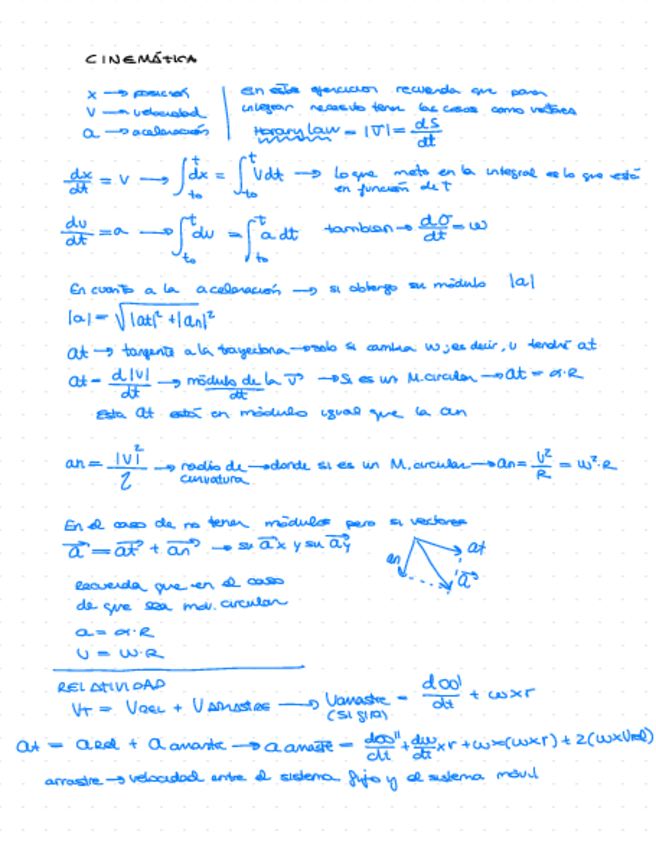 CINEMÁTICA
x → posición
v → velocidad
a → aceleración
En estos ejercicios recuerda que para
integrar necesito tener las cosas como vectores
Horary law = |V| = dS/dt
dx/dt = v → ∫_{to}^{t} dx = ∫_{to}^{t} v dt → lo que meto en la integral es lo que está
en función de t
dv/dt = a → ∫_{to}^{t} dv = ∫_{to}^{t} a dt tambien → dσ/dt = w
En cuanto a la aceleración → si obtengo su módulo |a|
|a| = √|at|² + |an|²
at → tangente a la trayectoria → solo si cambia w, es decir, v tendré at
at = d|v|/dt → módulo de la v⃗/dt → Si es un M. circular → at = α·R
Esta at está en módulo igual que la an
an = |v|²/ρ → radio de curvatura → donde si es un M. circular → an = v²/R = w²·R
En el caso de no tener módulos pero si vectores
a⃗ = at⃗ + an⃗ → su a⃗x y su a⃗y
an at a⃗
Recuerda que en el caso
de que sea mov. circular
a = α·R
v = w·R
RELATIVIDAD
VT = VREL + VARRASTRE → Varrastre = dOO'/dt + ω×r
(si gira)
at = a rel + a arrastre → a arrastre = dOO''/dt + dw/dt ×r + ω×(ω×r) + 2(ω×Vrel)
arrastre → velocidad entre el sistema fijo y el sistema móvil